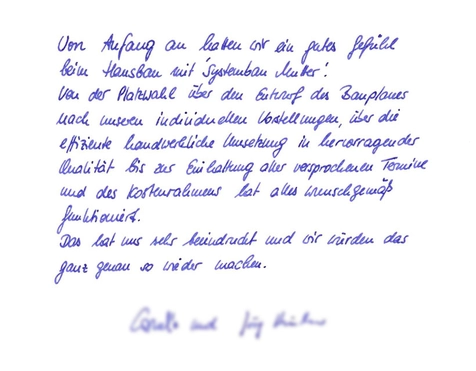 Von Anfang an hatten wir ein gutes Gefühl
beim Hausbau mit 'Systembau Mutter'.
Von der Platzwahl über den Entwurf des Bauplanes
nach unseren individuellen Vorstellungen, über die
effiziente handwerkliche Umsetzung in hervorragender
Qualität bis zur Einhaltung aller versprochenen Termine
und des Kostenrahmens hat alles wunschgemäß
funktioniert.
Das hat uns sehr beeindruckt und wir würden das
ganz genau so wieder machen.
und